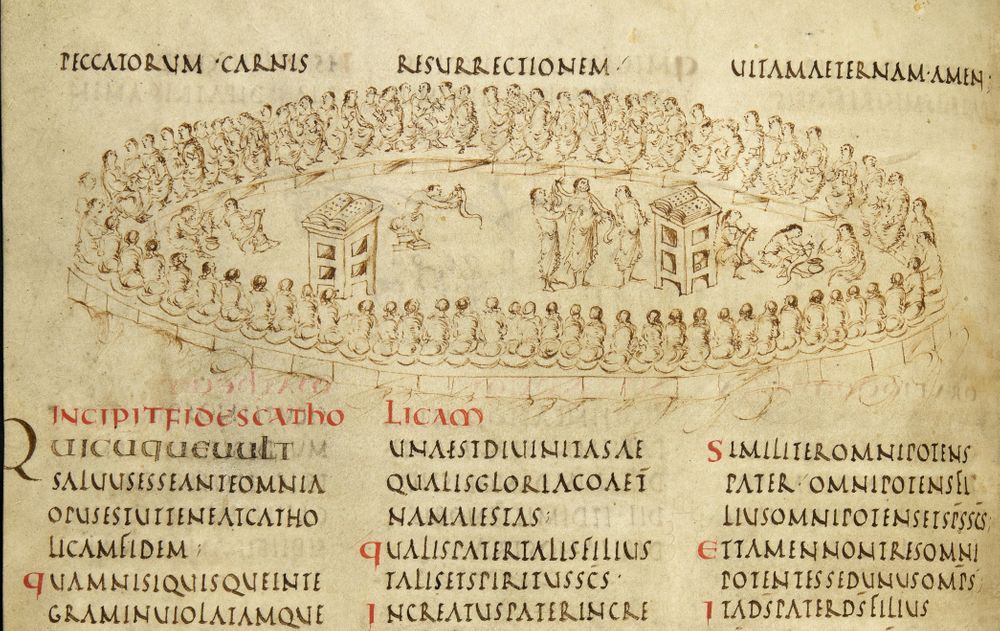 PECCATORUM·CARNIS RESURRECTIONEM· UITAMAETERNAM·AMEN;
INCIPITFIDESCATHO LICAM
QUICUQUEUULT
SALUUSESSEANTEOMNIA
OPUSESTUTTENEATCATHO
LICAMFIDEM;
QUAMNISIQUISQUEINTE
GRAMINUIOLATAMQUE
UNAESTDIUINITASAE
QUALISGLORIACOAET̄
NAMAIESTAS;
QUALISPATERTALISFILIUS
TALISETSPIRITUSSC̄S·
INCREATUSPATERINCRE
SIMILITEROMNIPOTENS
PATER·OMNIPOTENSFI
LIUSOMNIPOTENSETSP̄SSC̄S;
ETTAMENNONTRESOMNI
POTENTESSEDUNUSOMP̄S;
ITAD̄SPATERD̄SFILIUS